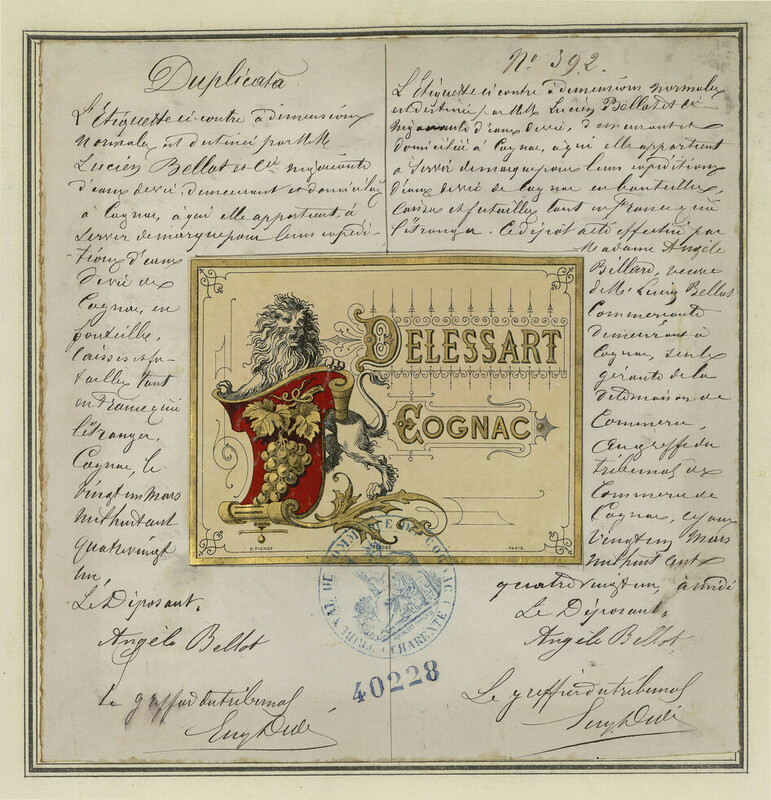 Duplicata
L'Étiquette ci-contre à dimensions
normales est destinée par MM
Lucien Bellot et Cie négociants
d'eaux de vie, demeurant et domiciliés
à Cognac, à qui elle appartient, à
servir de marque pour leurs expédi-
tions d'eaux
de vie de
Cognac, en
bouteilles,
caisses et fu-
tailles tant
en France qu'à
l'étranger.
Cognac, le
vingt un Mars
mil huit cent
quatre vingt
un,
Le Déposant,
Angèle Bellot
Le greffier du tribunal
No 392.
L'Étiquette ci contre à dimensions normales
est destinée par MM. Lucien Bellot et Cie
négociants d'eaux de vie, demeurant et
domiciliés à Cognac, à qui elle appartient
à servir de marque pour leurs expéditions
d'eaux de vie de Cognac en bouteilles,
caisses et futailles tant en France qu'à
l'étranger. Ce dépôt a été effectué par
Madame Angèle
Billard, veuve
de Mr Lucien Bellot
Commerçante
demeurant à
Cognac, seule
gérante de la
dite maison de
Commerce,
au greffe du
tribunal de
Commerce de
Cognac, ce jour
vingt un Mars
mil huit cent
quatre vingt un, à midi
Le Déposant,
Angèle Bellot
Le greffier du tribunal
DELESSART
COGNAC
E. PICHOT
PARIS.
TRIBUNAL DE COMMERCE DE COGNAC
(CHARENTE)
40228